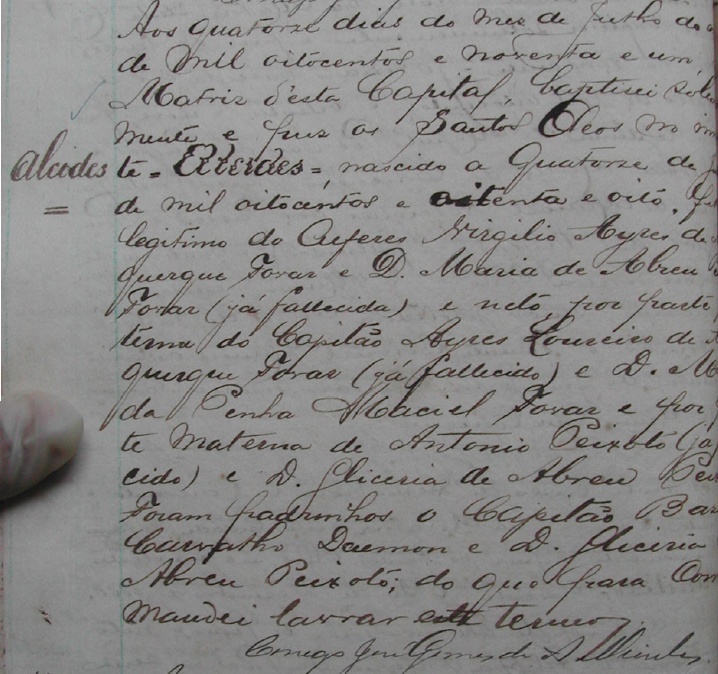 Aos quatorze dias do mes de Julho do
de mil oitocentos e noventa e um
Matriz d'esta Capital, baptisei sole
mente e puz os Santos Oleos no in
Alcides te = Alcides =, nascido a Quatorze de
=
de mil oitocentos e oitenta e oito, fi
legitimo do Alferes Virgilio Ayres de
querque Tovar e D. Maria de Abreu
Tovar (já fallecida) e neto, por parte
terna do Capitão Ayres Loureiro de
querque Tovar (já fallecido) e D. M
da Penha Maciel Tovar e por
te materna de Antonio Peixoto (já
cido) e D. Gliceria de Abreu Pei
Foram padrinhos o Capitão Baz
Carvalho Daemon e D. Gliceria
Abreu Peixoto; do que para Con
mandei lavrar este termo.
Conego José Gomes de